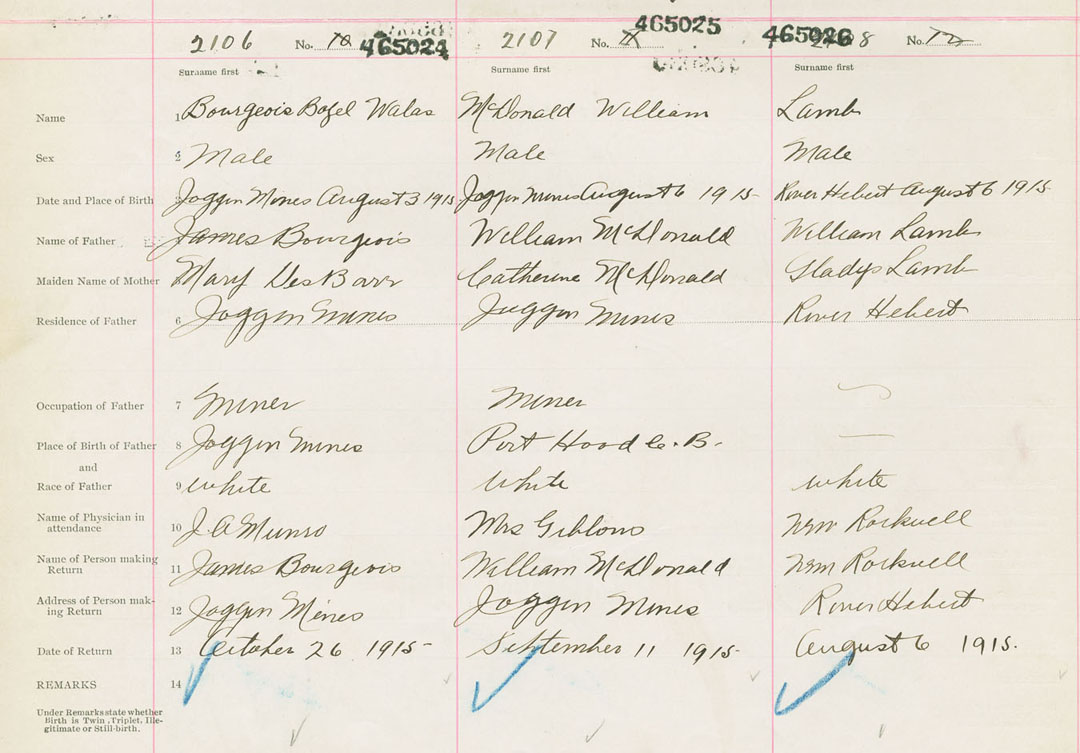 2106 No. 10 465024 2107 No. 11 465025 465026 8 No. 12
Surname first Surname first Surname first
Name 1 Bourgeois Bazel Walas McDonald William Lamb
Sex 2 Male Male Male
Date and Place of Birth 3 Joggin Mines August 3 1915 Joggin Mines August 6 1915 River Hebert August 6 1915
Name of Father James Bourgeois William McDonald William Lamb
Maiden Name of Mother Mary DesBarr Catherine McDonald Gladys Lamb
Residence of Father 6 Joggin Mines Joggin Mines River Hebert
Occupation of Father 7 Miner Miner —
Place of Birth of Father 8 Joggin Mines Port Hood C.B. —
and
Race of Father 9 White White White
Name of Physician in
attendance 10 J.A Munro Mrs Gibbons Wm Rockwell
Name of Person making
Return 11 James Bourgeois William McDonald Wm Rockwell
Address of Person mak-
ing Return 12 Joggin Mines Joggin Mines River Hebert
Date of Return 13 October 26 1915 September 11 1915 August 6 1915.
REMARKS 14
Under Remarks state whether
Birth is Twin, Triplet, Ille-
gitimate or Still-birth.